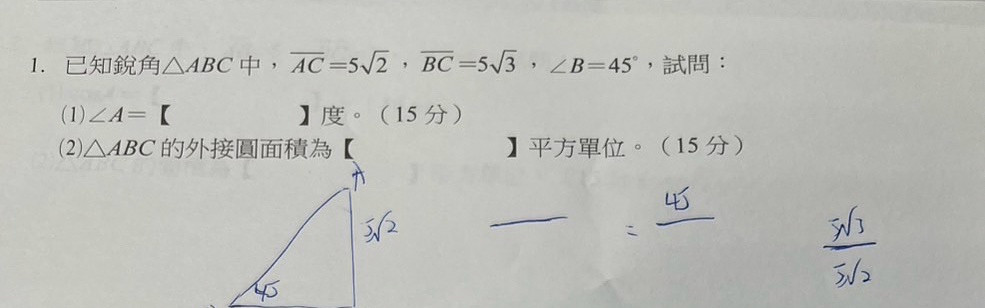 1. 已知銳角△ABC 中，AC=5√2，BC=5√3，∠B=45°，試問：
(1)∠A=【　　　　】度。（15 分）
(2)△ABC 的外接圓面積為【　　　　】平方單位。（15 分）
A
5√2
45
=
45
5√3
5√2